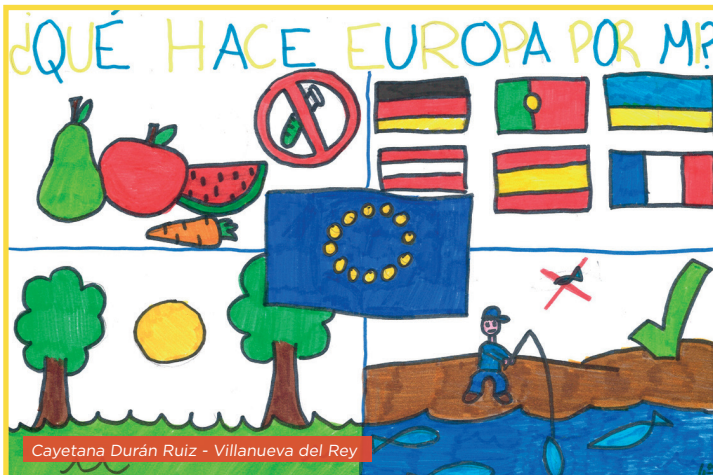 ¿QUÉ HACE EUROPA POR MI?
Cayetana Durán Ruiz - Villanueva del Rey